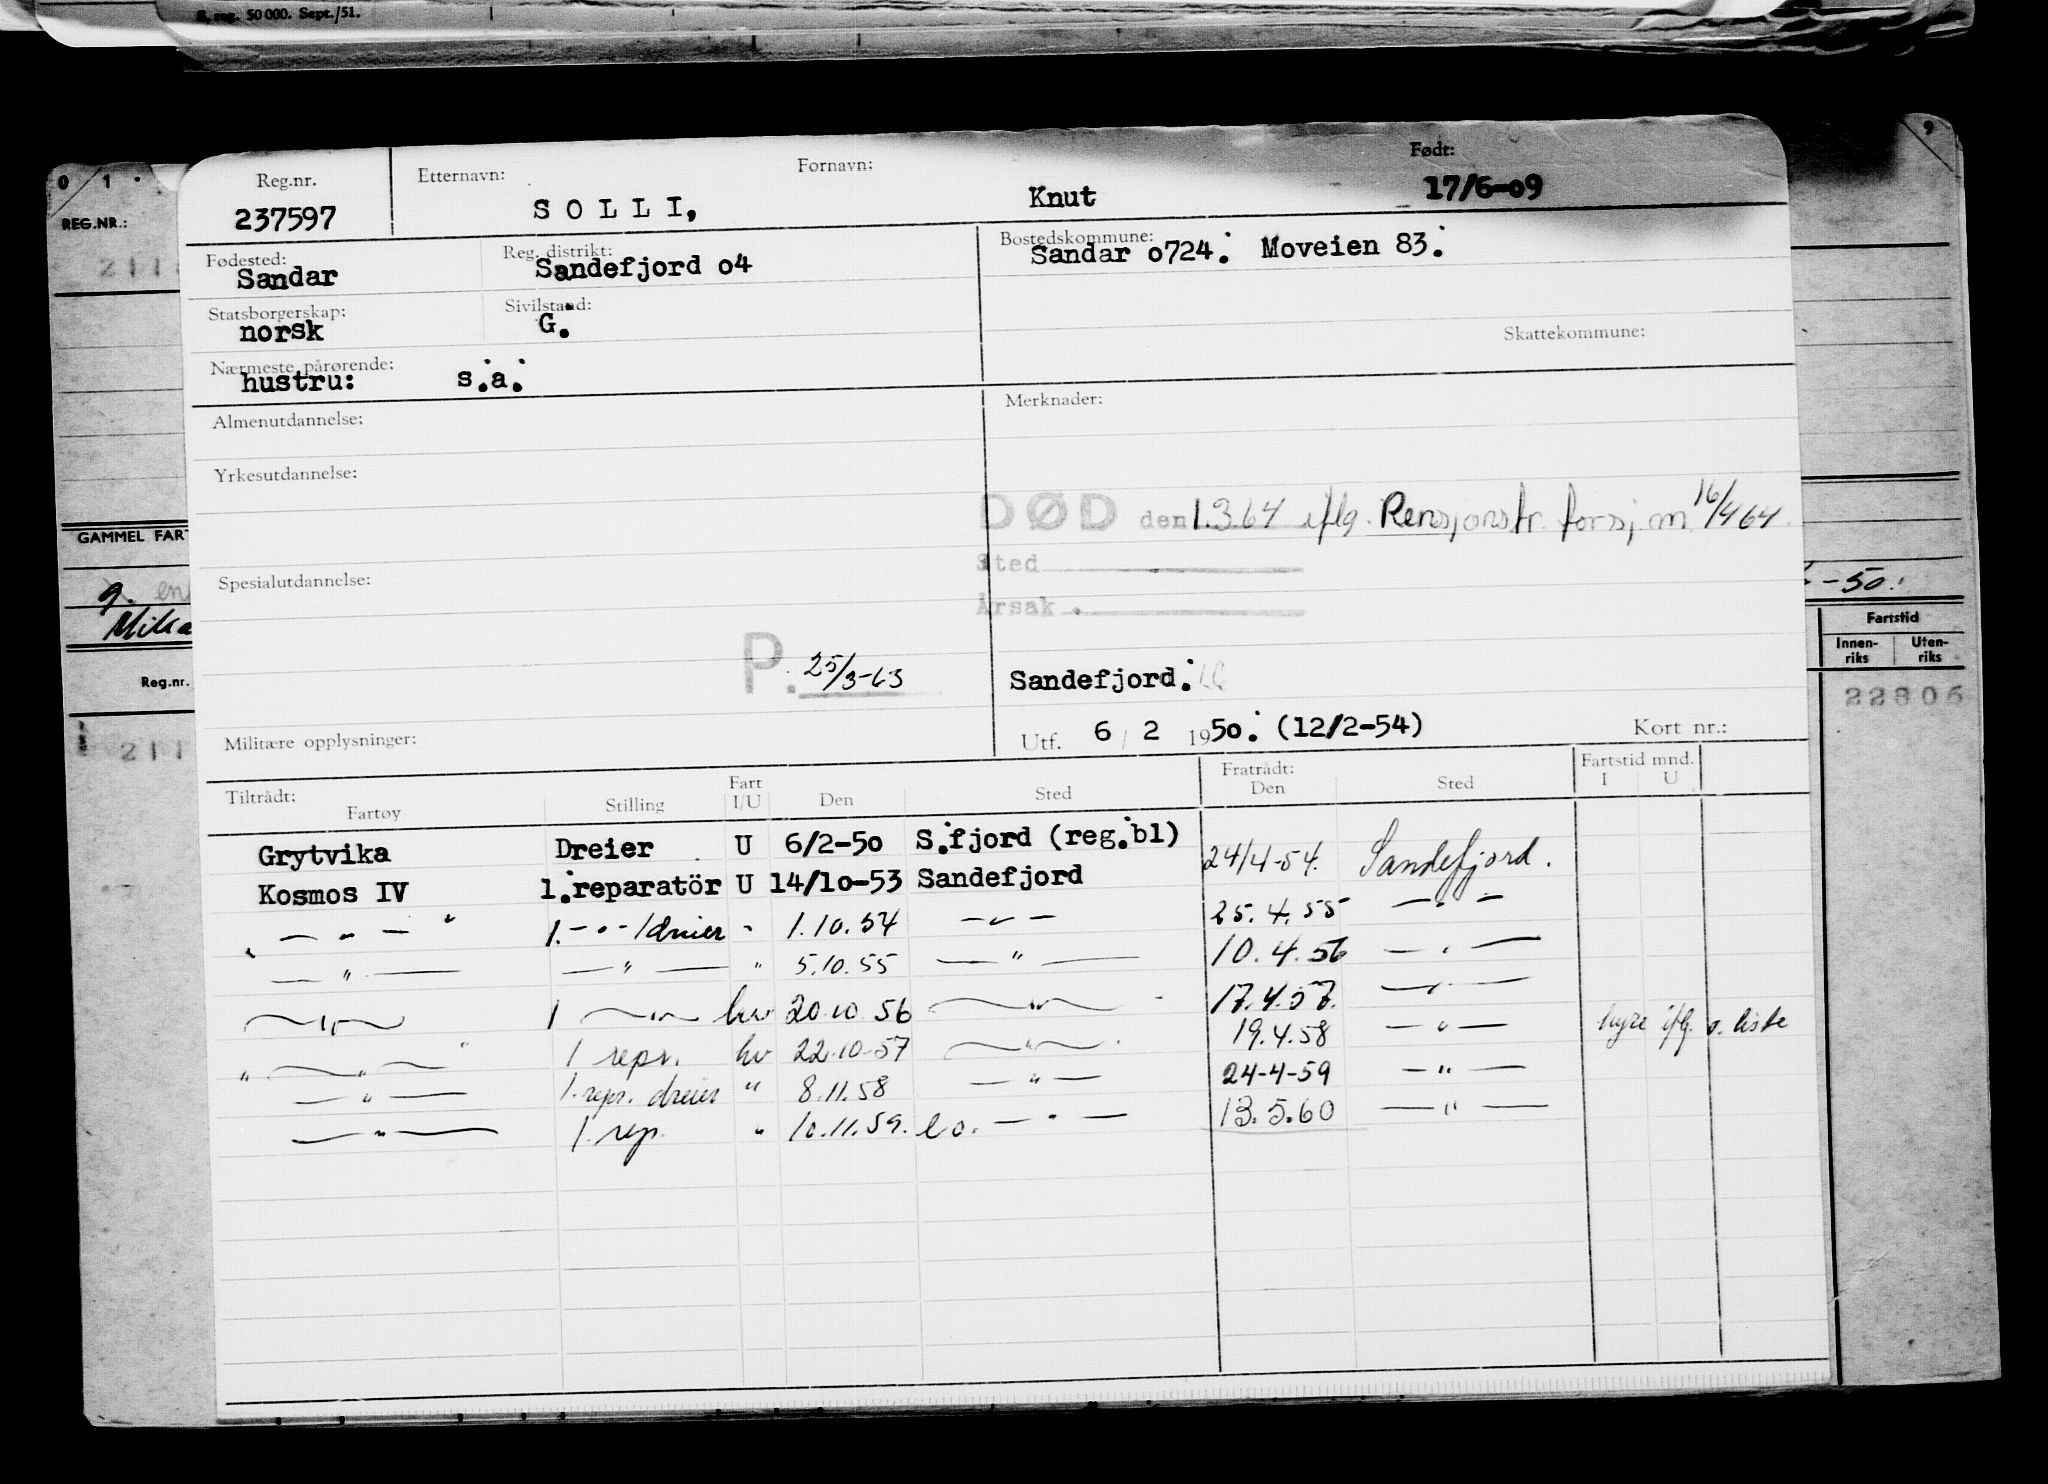 reg. 50 000. Sept./51.
0 1
REG.NR.:
GAMMEL FART
Reg.nr.
9
-50.
Fartstid
Innen-riks Uten-riks
22806
Reg.nr. Etternavn: Fornavn: Født:
237597 SOLLI, Knut 17/6-09
Fødested: Reg. distrikt: Bostedskommune:
Sandar Sandefjord o4 Sandar o724. Moveien 83.
Statsborgerskap: Sivilstand:
norsk G. Skattekommune:
Nærmeste pårørende:
hustru: s.a.
Almenutdannelse: Merknader:
Yrkesutdannelse:
DØD den 1.3.64 iflg. Pensjonstr. forsj. m. 16/4 64.
Sted
Spesialutdannelse:
Årsak
P. 25/3-63
Sandefjord.
Militære opplysninger: Utf. 6 / 2 1950. (12/2-54) Kort nr.:
Tiltrådt: Fart Fratrådt: Fartstid mnd.
Fartøy Stilling I/U Den Sted Den Sted I U
Grytvika Dreier U 6/2-50 S.fjord (reg.bl)
Kosmos IV 1.reparatör U 14/10-53 Sandefjord 24/4-54. Sandefjord.
— " — 1. - " - /dreier " 1.10.54 — " — 25.4.55 — " —
— " — — " — " 5.10.55 — " — 10.4.56 — " —
— " — 1 — " — hv 20.10.56 — " — 17.4.57. — " —
" — " — " 1 repr. hv 22.10-57 — " — 19.4.58 — " — hyre iflg. o. liste
— " — 1. repr. dreier " 8.11.58 — " — 24-4-59 — " —
— " — 1. rep. " 10.11.59. — " — 13.5.60 — " —